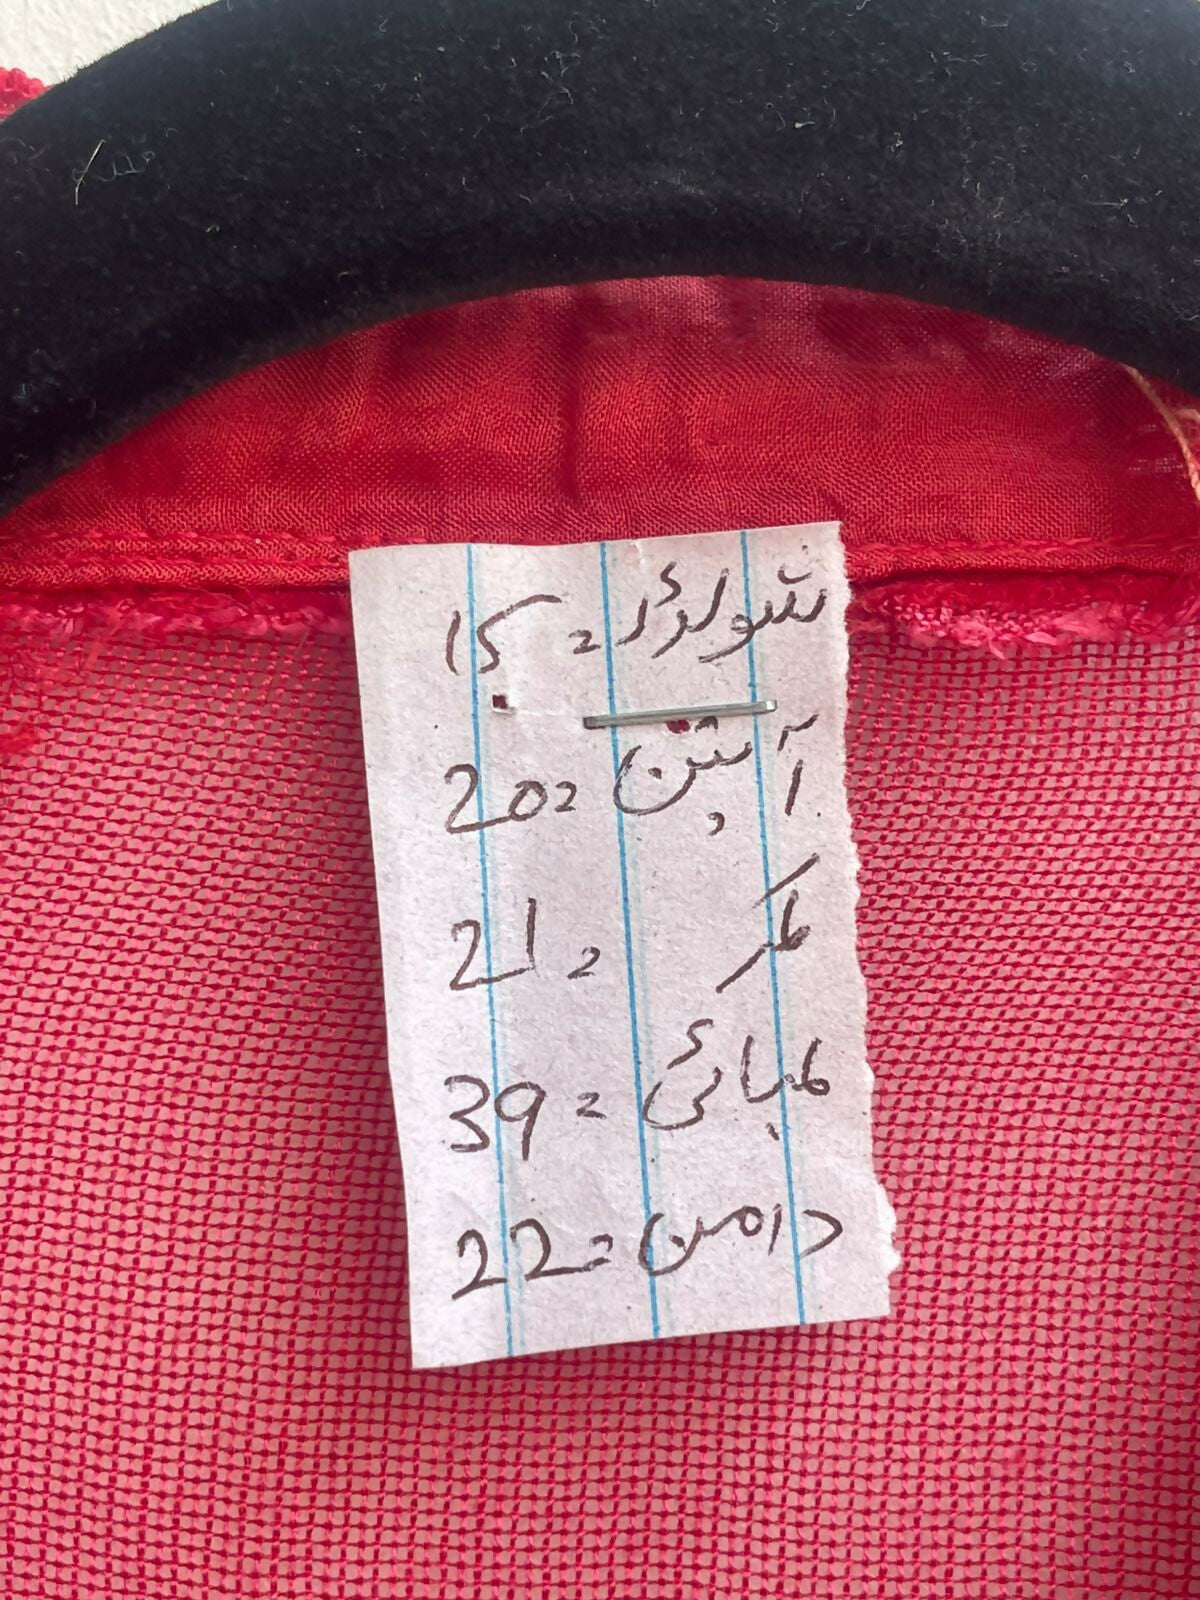 شولڈر = 15
آستین = 20
کمر = 21
لمبائی = 39
دامن = 22